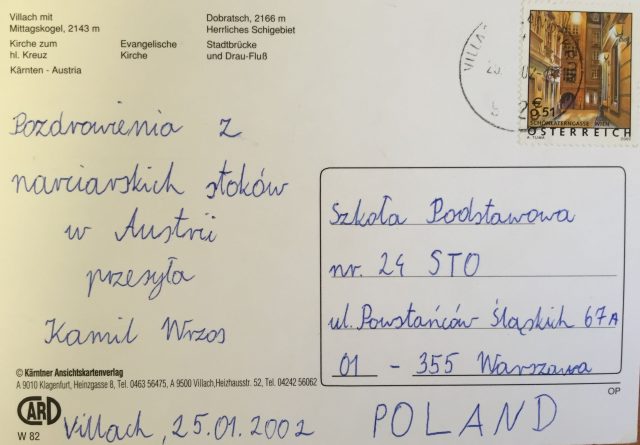 Villach mit
Mittagskogel, 2143 m
Kirche zum
hl. Kreuz
Kärnten - Austria
Evangelische
Kirche
Dobratsch, 2166 m
Herrliches Schigebiet
Stadtbrücke
und Drau-Fluß
€
0,51
SCHÖNLATERNGASSE WIEN
ÖSTERREICH
Pozdrowienia z
narciarskich stoków
w Austrii
przesyła
Kamil Wrzos
Szkoła Podstawowa
nr. 24 STO
ul. Powstańców Śląskich 67A
01 - 355 Warszawa
POLAND
© Kärntner Ansichtskartenverlag
A 9010 Klagenfurt, Heinzgasse 8, Tel. 0463 56475, A 9500 Villach, Heizhausstr. 52, Tel. 04242 56062
CARD
W 82
Villach, 25.01.2002
OP